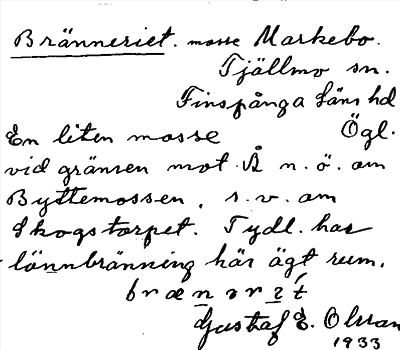 Bränneriet. mosse Markebo.
Tjällmo sn.
Finspånga Läns hd
En liten mosse Ögl.
vid gränsen mot Å n.ö. om
Byttemossen, s.v. om
Skogstorpet. Tydl. har
lönnbränning här ägt rum.
Gustaf E. Olsson
1933